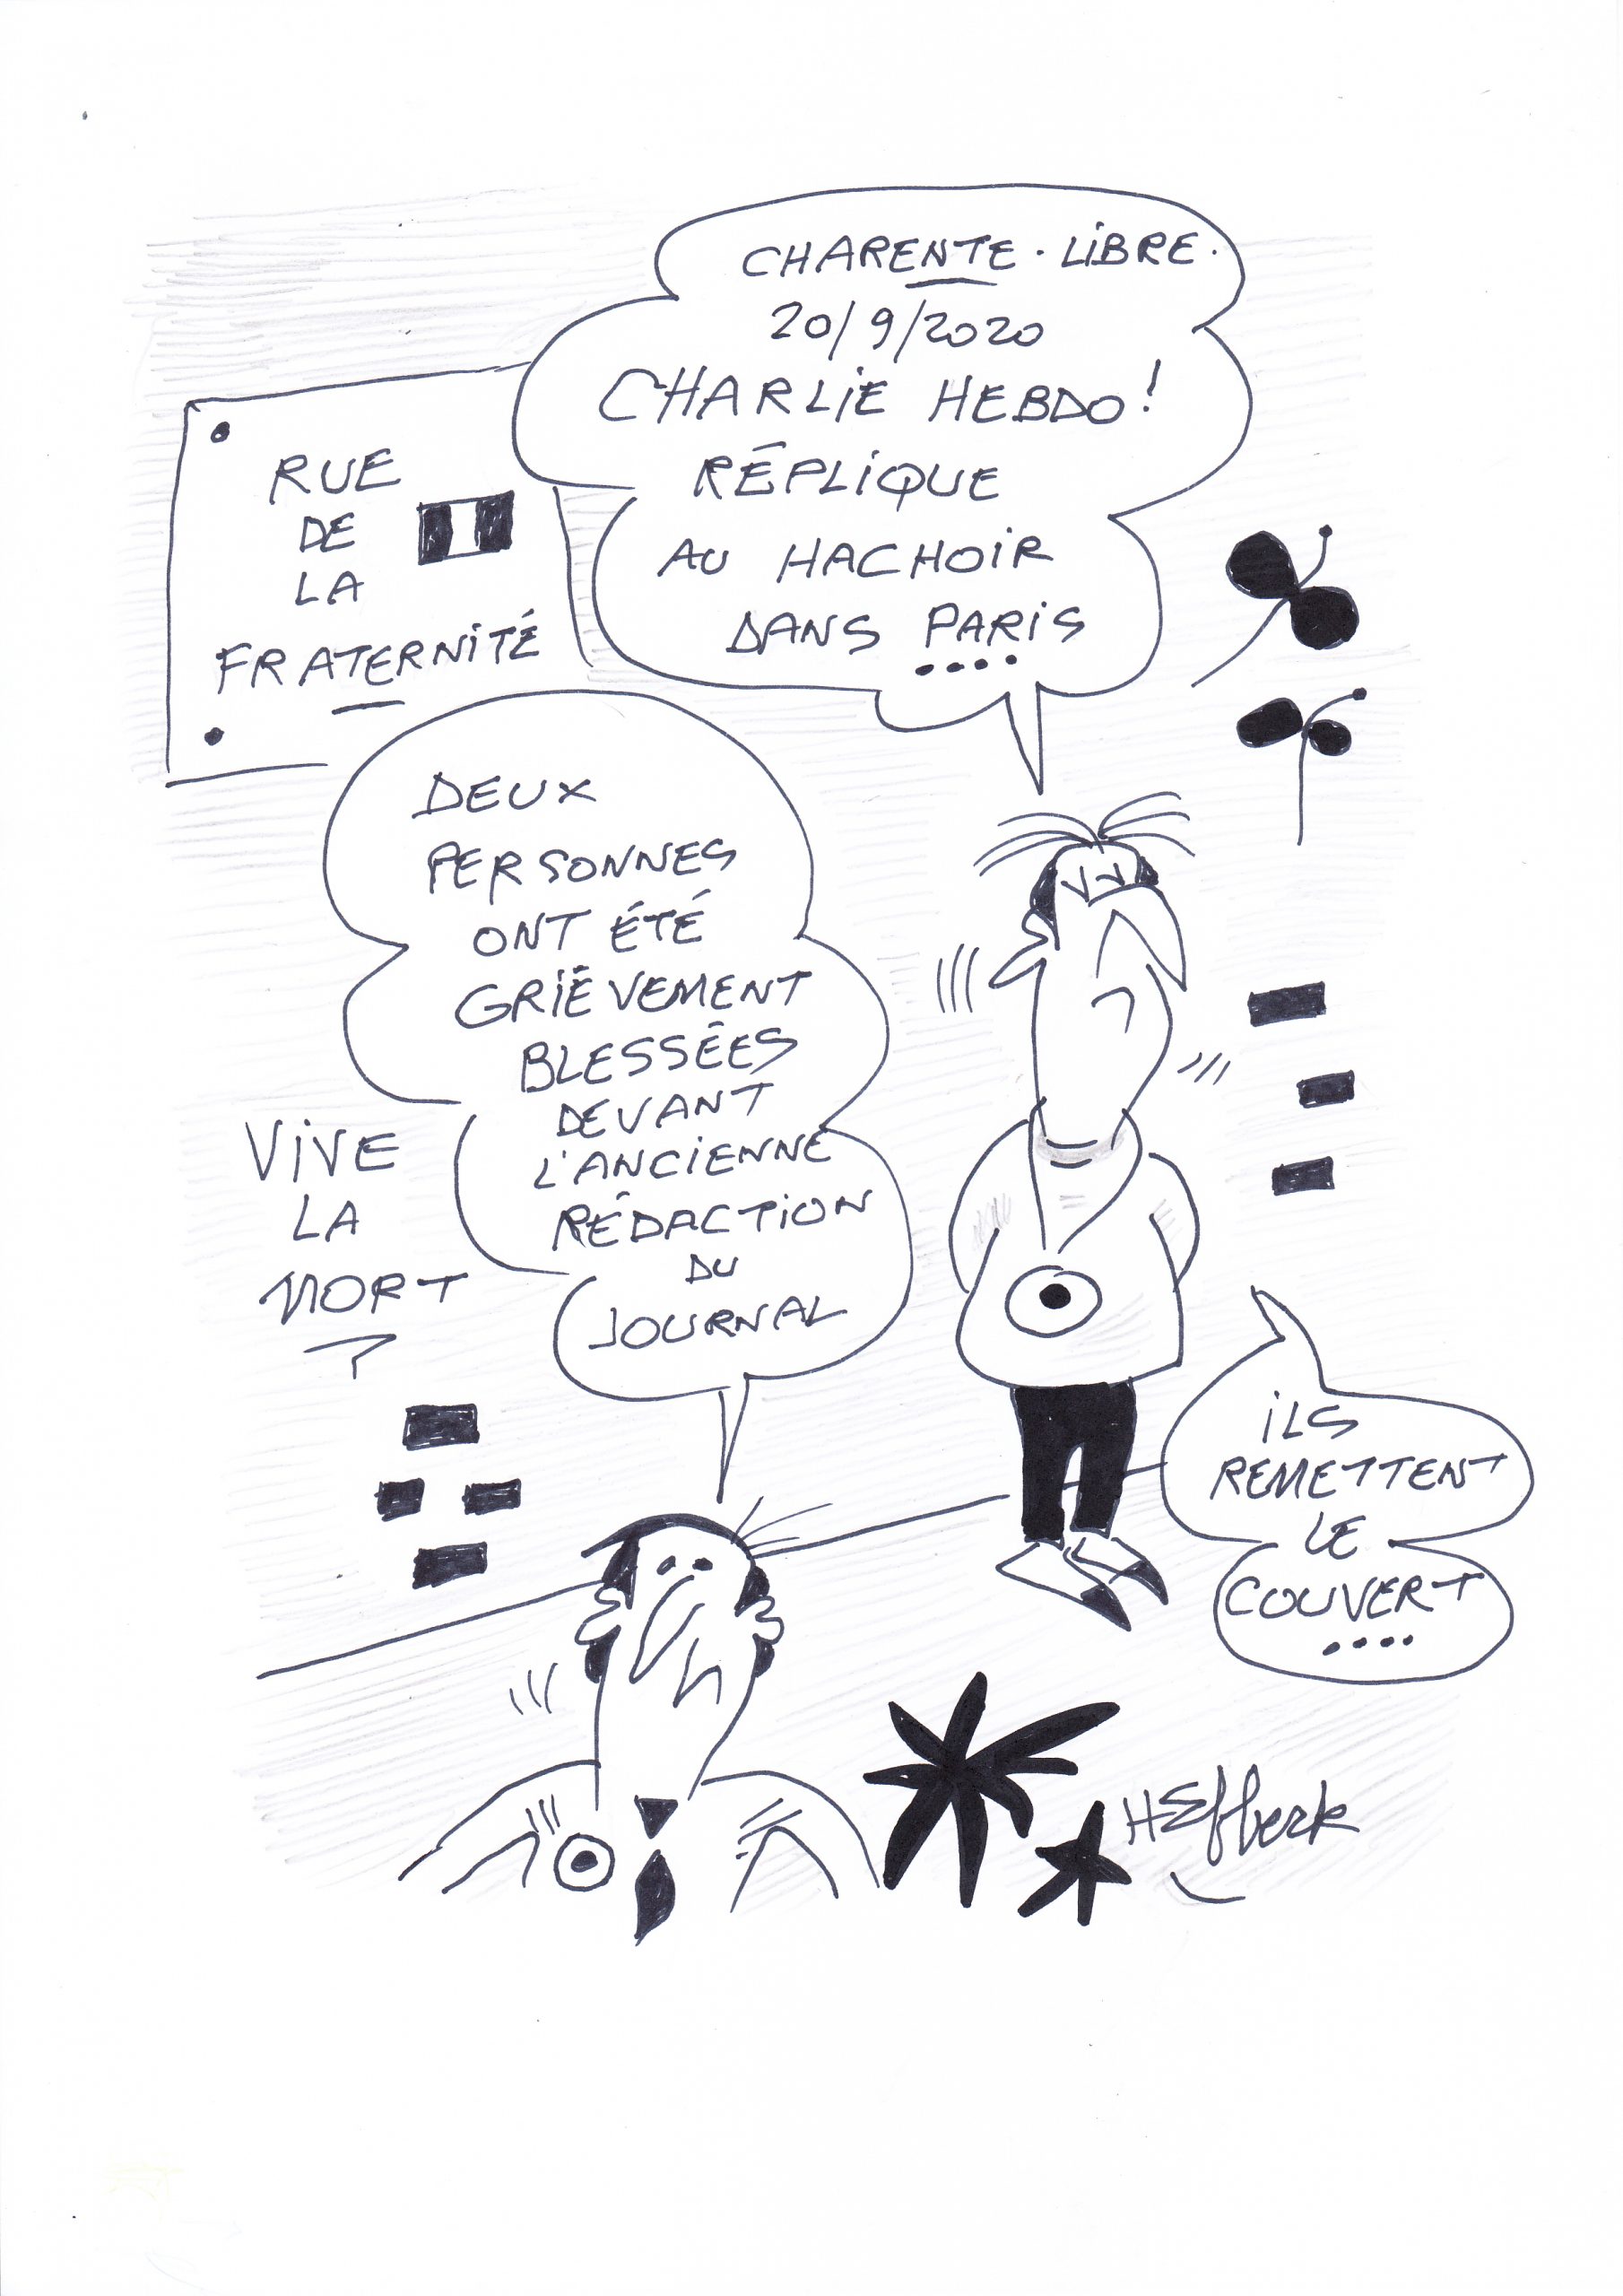 CHARENTE . LiBRE .
20/9/2020
CHARLiE HEBDO !
RÉPLiQUE
AU HACHOiR
DANS PARiS
....
RUE
DE
LA
FRATERNiTÉ
DEUX
PERSONNES
ONT ÉTÉ
GRiÈVEMENT
BLESSÉES
DEVANT
L'ANCiENNE
RÉDACTiON
DU
JOURNAL
ViVE
LA
MORT
?
iLS
REMETTENT
LE
COUVERT
....